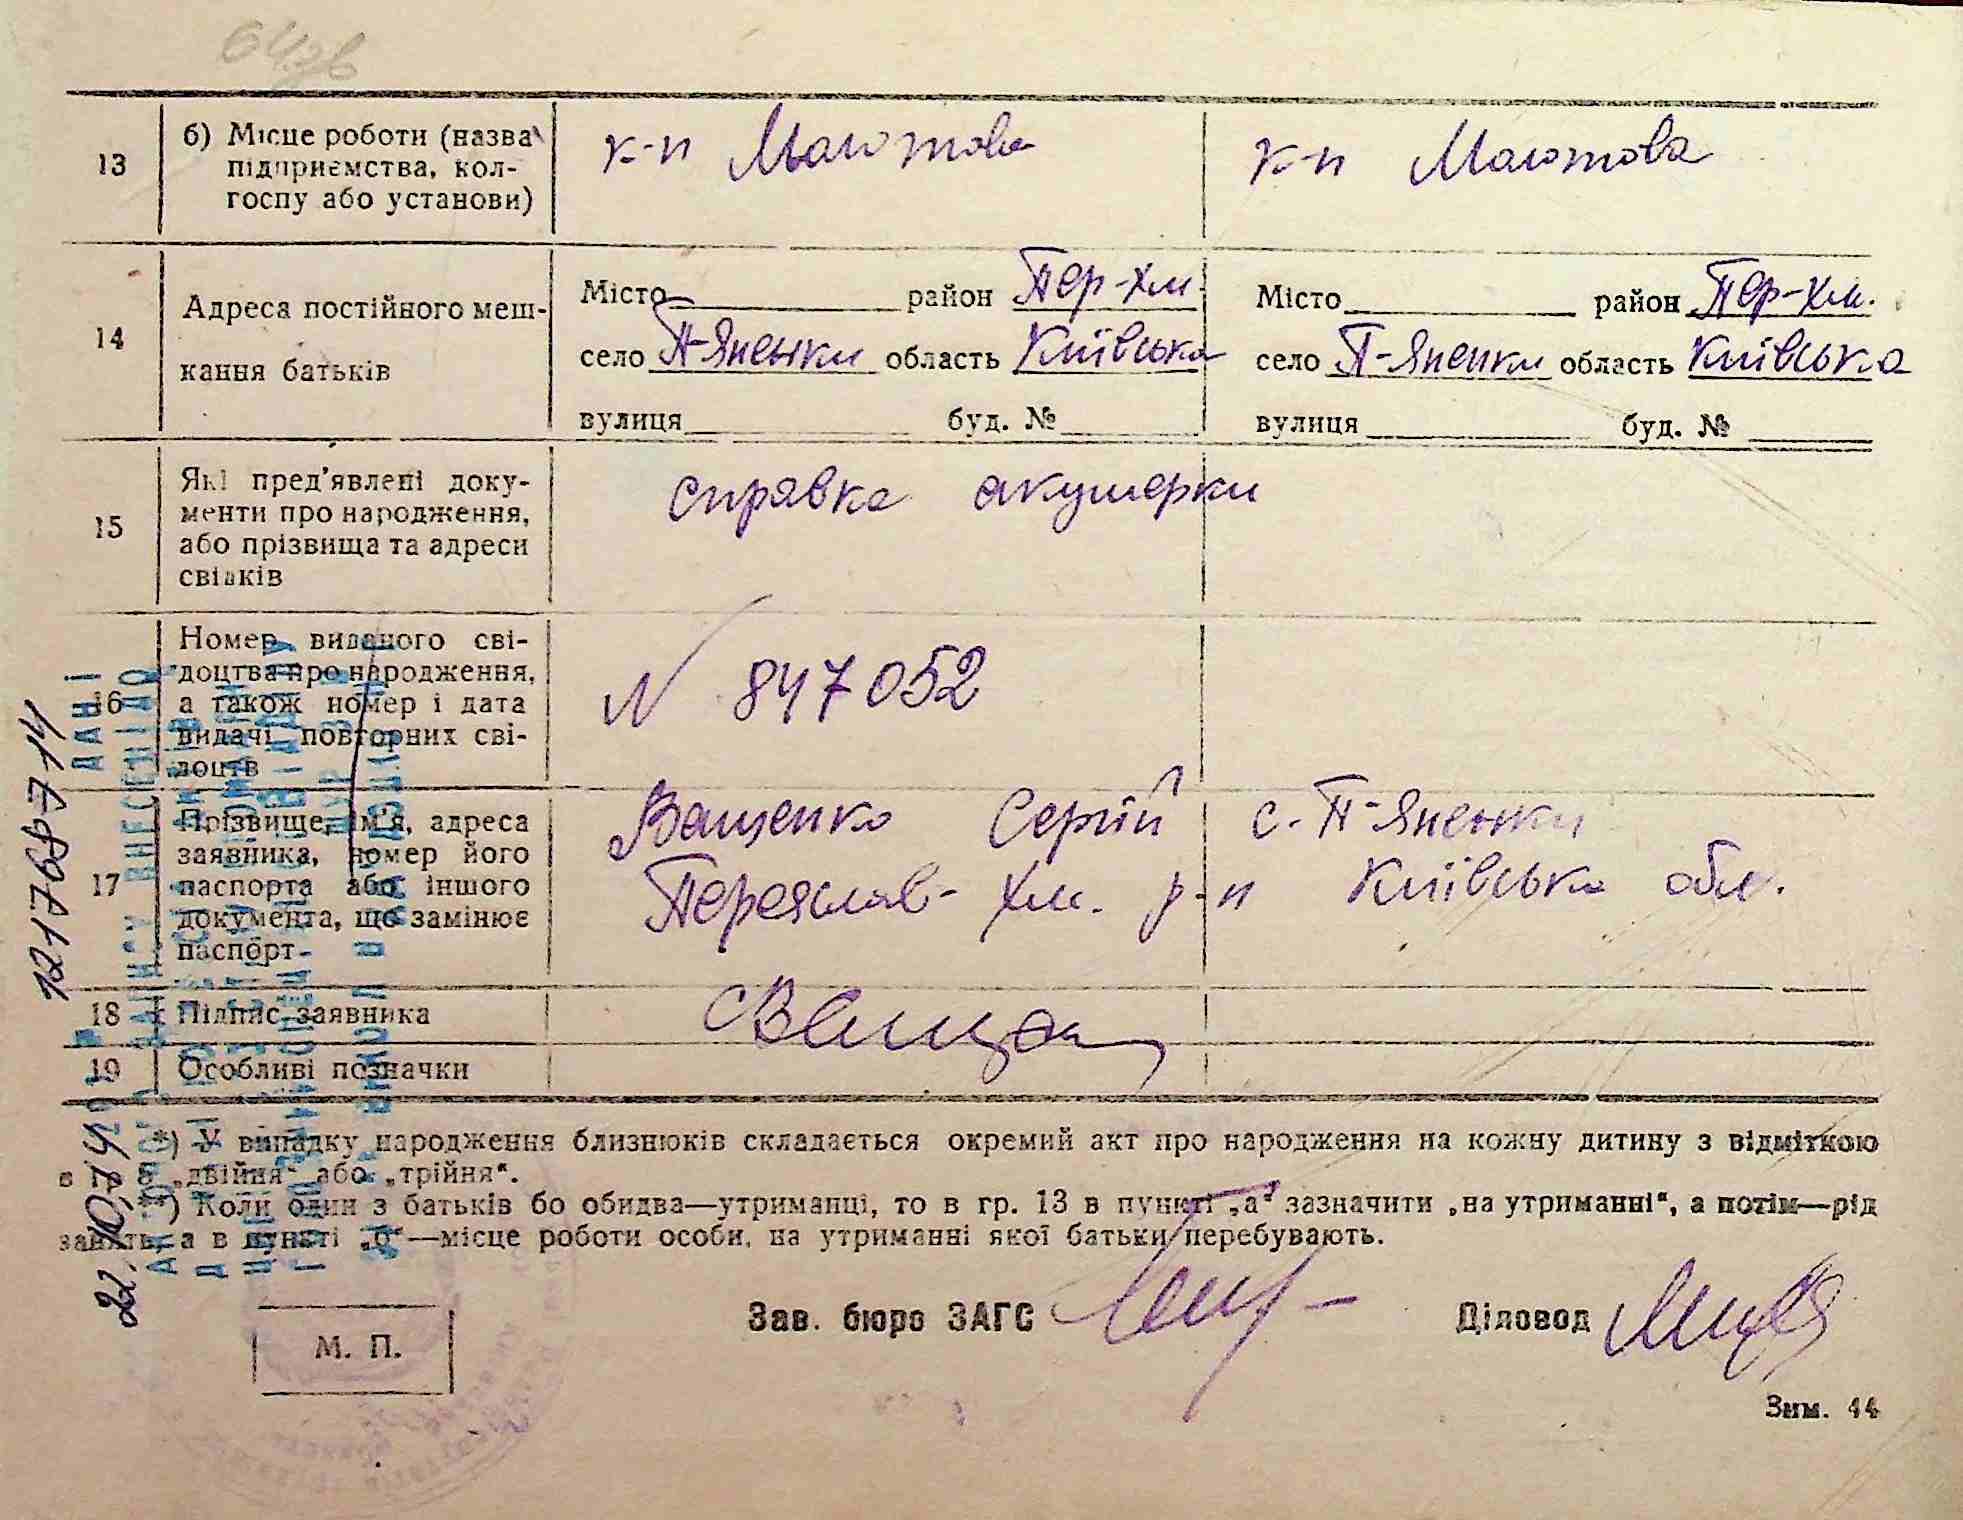 13 б) Місце роботи (назва підприємства, колгоспу або установи)
к-п Молотова
к-п Молотова
14 Адреса постійного мешкання батьків
Місто район Пер-Хм.
село П-Яненки область Київська
вулиця буд. №
Місто район Пер-Хм.
село П-Яненки область Київська
вулиця буд. №
15 Які пред’явлені документи про народження, або прізвища та адреси свідків
справка акушерки
16 Номер виданого свідоцтва про народження, а також номер і дата видачі повторних свідоцтв
N 847052
17 Прізвище, ім’я, адреса заявника, номер його паспорта або іншого документа, що замінює паспорт
Ващенко Сергій с. П-Яненки
Переяслав-Хм. р-н Київська обл.
18 Підпис заявника
19 Особливі позначки
*) У випадку народження близнюків складається окремий акт про народження на кожну дитину з відміткою
в гр. „двійня“ або „трійня“.
*) Коли один з батьків бо обидва—утриманці, то в гр. 13 в пункті „а“ зазначити „на утриманні“, а потім—рід
занять, а в пункті „б“—місце роботи особи, на утриманні якої батьки перебувають.
Зав. бюро ЗАГС
Діловод
М. П.
Зим. 44
121768714
ДАНІ
ВНЕСЕНІ ДО